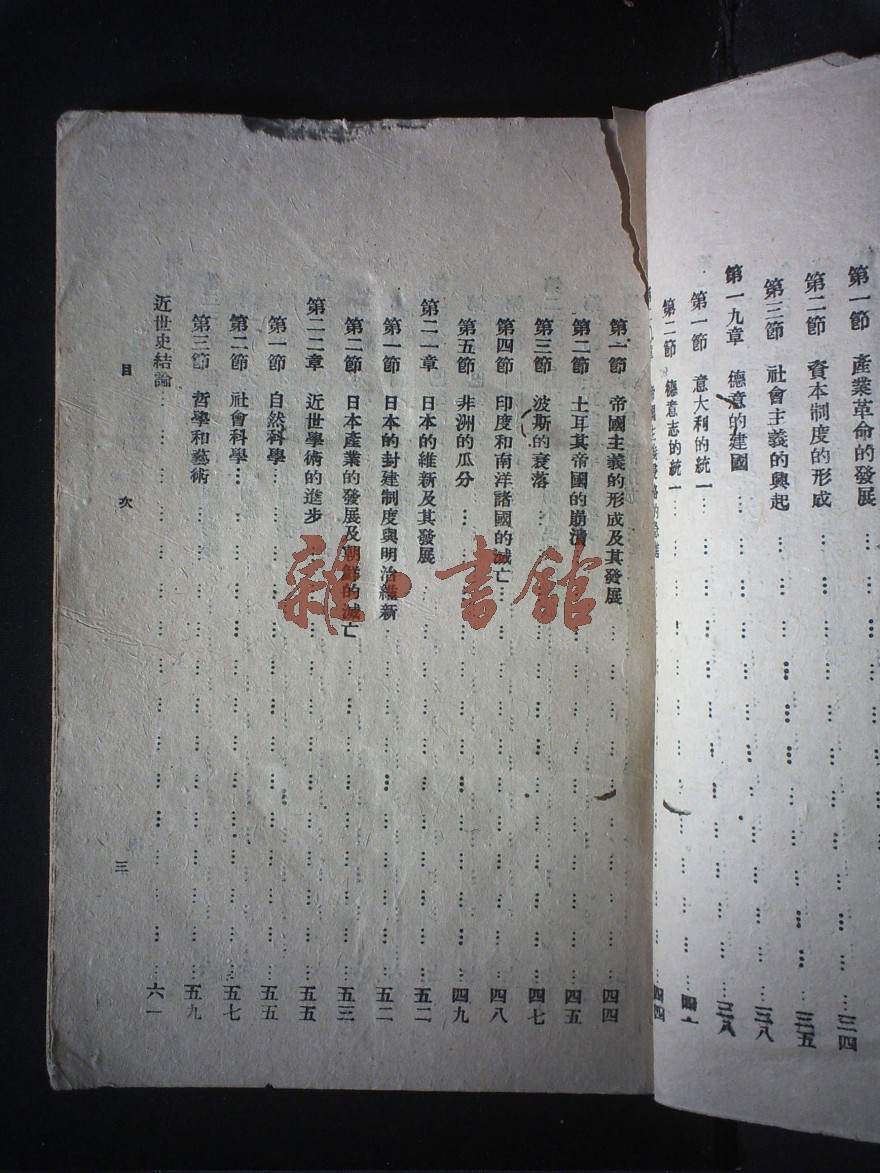 第一節 產業革命的發展 三四
第二節 資本制度的形成 三五
第三節 社會主義的興起 三八
第一九章 德意的建國 三八
第一節 意大利的統一
第二節 德意志的統一
四四
第一節 帝國主義的形成及其發展 四四
第二節 土耳其帝國的崩潰 四五
第三節 波斯的衰落 四七
第四節 印度和南洋諸國的滅亡 四八
第五節 非洲的瓜分 四九
第二一章 日本的維新及其發展 五二
第一節 日本的封建制度與明治維新 五二
第二節 日本產業的發展及朝鮮的滅亡 五三
第二二章 近世學術的進步 五五
第一節 自然科學 五五
第二節 社會科學 五七
第三節 哲學和藝術 五九
近世史結論 六一
目次 三
雜·書館